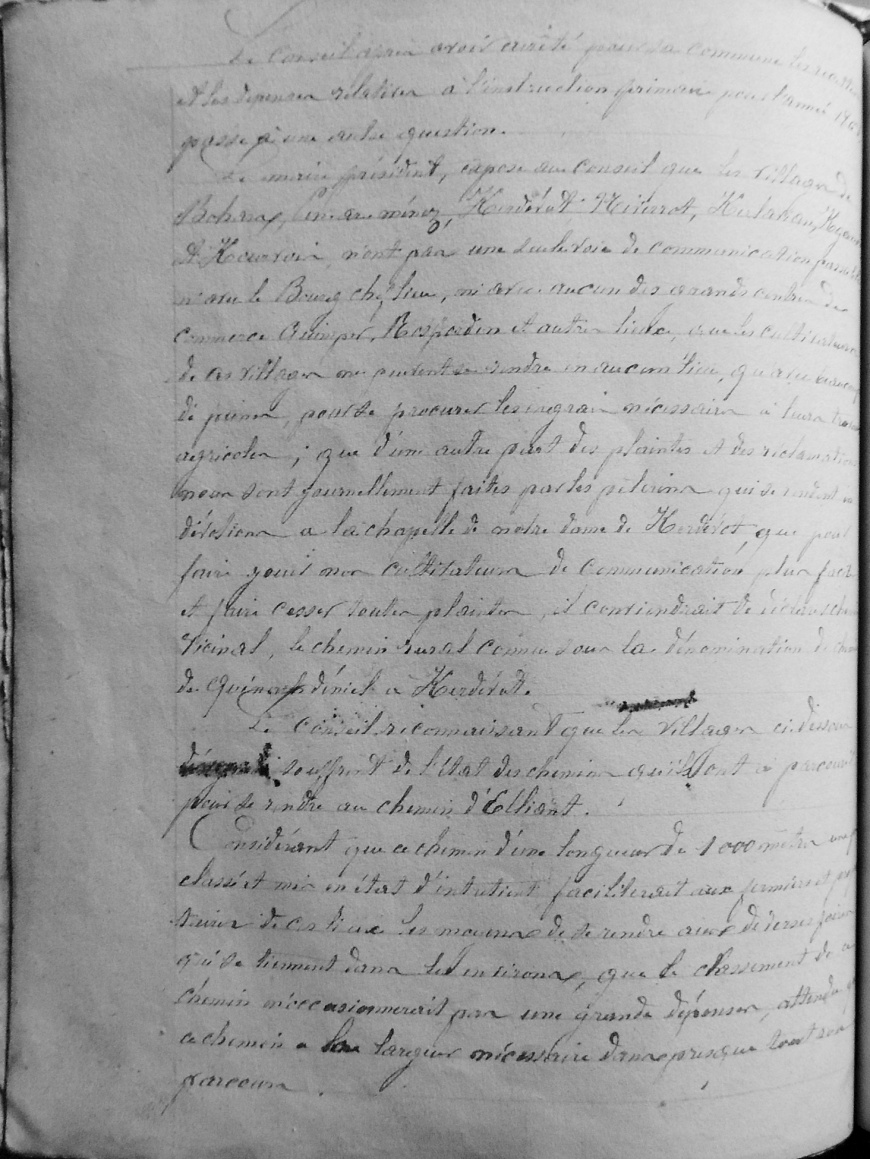 Le Conseil après avoir arrêté pour la commune les
et les dépenses relatives à l'instruction primaire pour l'année
passe à une autre question.
Le maire président, expose au conseil que les villages de
Kerdévot Kerlaran,
et n'ont pas une seule voie de communication
ni avec le Bourg chef lieu, ni avec aucun des grands centres de
commerce Quimper, Rosporden et autres lieux, que les cultivateurs
de ces villages ne peuvent se rendre en aucun lieu, qu'avec beaucoup
de peines, pour se procurer les engrais nécessaires à leurs
agricoles ; que d'une autre part des plaintes et des réclamations
nous sont journellement faites par les pèlerins qui se rendent en
dévotion à la chapelle de notre dame de Kerdévot, que pour
faire jouir nos cultivateurs de communication plus facile
et faire cesser toutes plaintes, il conviendrait de
vicinal, le chemin rural connu sous la dénomination de
de à Kerdévot.
Le Conseil reconnaissant que les villages ci dessus
souffrent de l'état des chemins qu'ils ont à parcourir
pour se rendre au chemin d'Elliant.
Considérant que ce chemin d'une longueur de 1000 mètres une
classé et mis en état d'entretient faciliterait aux fermiers et
de ces lieux les moyens de se rendre aux diverses foires
qui se tiennent dans les environs, que le classement de ce
chemin n'occasionnerait pas une grande dépense, attendu
ce chemin a la largeur nécessaire dans presque tout son
parcours